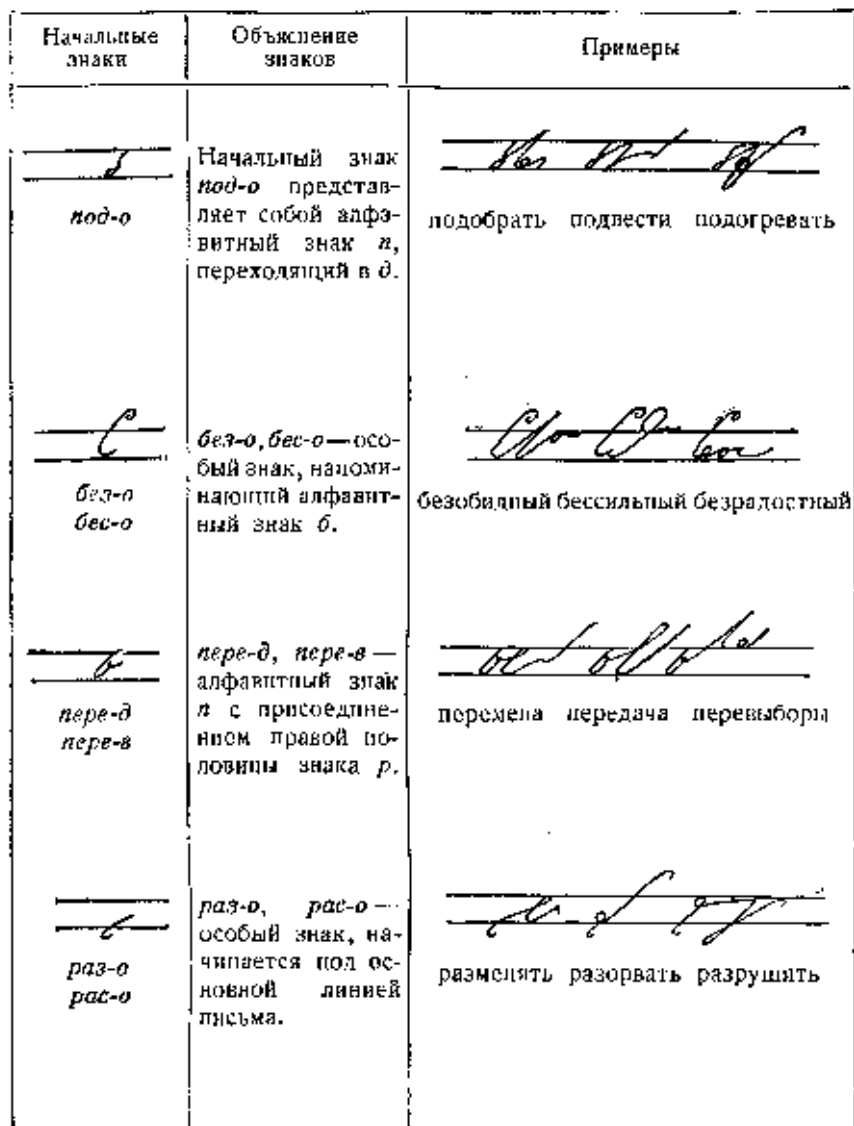 Начальные знаки
Объяснение знаков
Примеры
под-о
Начальный знак
под-о представ-
ляет собой алфа-
витный знак п,
переходящий в д.
подобрать подвести подогревать
без-о
бес-о
без-о, бес-о — осо-
бый знак, напоми-
нающий алфавит-
ный знак б.
безобидный бессильный безрадостный
пере-д
пере-в
пере-д, пере-в —
алфавитный знак
п с присоедине-
нием правой по-
ловины знака р.
перемена передача перевыборы
раз-о
рас-о
раз-о, рас-о —
особый знак, на-
чинается под ос-
новной линией
письма.
разменять разорвать разрушить